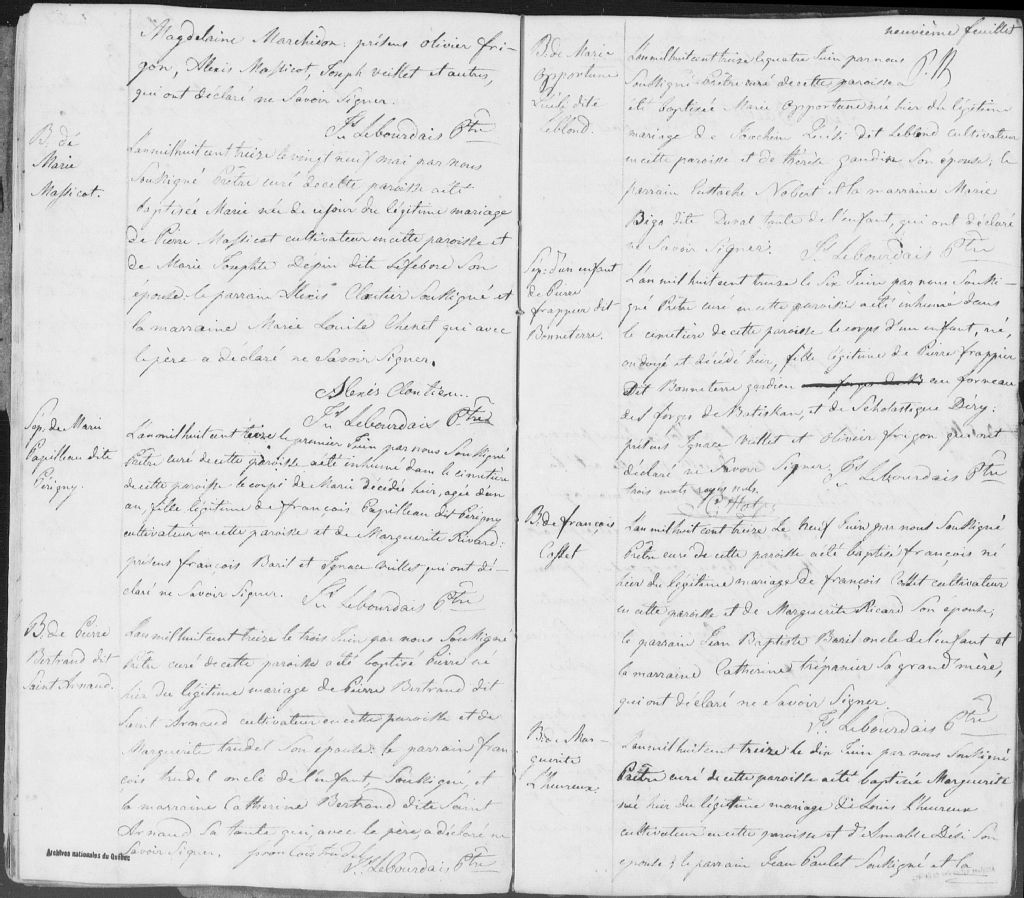 Magdelaine Marchidon: présens olivier fri-
gon, Alexis Massicot, Joseph veillet et autres,
qui ont déclaré ne Savoir Signer.
Lebourdais Ptre
B. de
Marie
Massicot.
L'an mil huit cent treize le vingt neuf mai par nous
Soussigné Prêtre curé de cette paroisse a été
baptisée Marie née de ce jour du légitime mariage
de Pierre Massicot cultivateur en cette paroisse et
de Marie Josephte Depin dite Lefebvre Son
épouse: le parrain Alexis Cloutier Soussigné et
la marraine Marie Louise Chenet qui avec
le père a déclaré ne Savoir Signer.
Alexis Cloutier
Lebourdais Ptre
Sep. de Marie
Papilleau dite
Périgny.
L'an mil huit cent treize le premier Juin par nous Soussigné
Prêtre curé de cette paroisse a été inhumé dans le cimetière
de cette paroisse le corps de Marie décédée hier, agée d'un
an, fille légitime de françois Papilleau dit Périgny
cultivateur en cette paroisse et de Marguerite Rivard:
présens françois Baril et Ignace Millet qui ont dé-
claré ne Savoir Signer.
Lebourdais Ptre
B. de Pierre
Bertrand dit
Saint Arnaud.
L'an mil huit cent treize le trois Juin par nous Soussigné
Prêtre curé de cette paroisse a été baptisé Pierre né
hier du légitime mariage de Pierre Bertrand dit
Saint Arnaud cultivateur en cette paroisse et de
Marguerite trudel Son épouse: le parrain fran
çois trudel oncle de l'enfant, Soussigné, et
la marraine Catherine Bertrand dite Saint
Arnaud Sa tante qui avec le père a déclaré ne
Savoir Signer.
Lebourdais Ptre
Archives nationales du Québec
neuvième feuillet
B. de Marie
Opportune
dite
Leblond.
L'an mil huit cent treize le quatre Juin par nous
Soussigné Prêtre curé de cette paroisse a
été baptisée Marie Opportune née hier du légitime
mariage de Joachim dit Leblond cultivateur
en cette paroisse et de thérèse Son épouse; le
parrain Eustache Nobert et la marraine Marie
Bigo dite Duval tante de l'enfant, qui ont déclaré
ne Savoir Signer.
Lebourdais Ptre
Sep. d'un enfant
de Pierre
frappier dit
Bonneterre.
L'an mil huit cent treize le Six Juin par nous Soussi-
gné Prêtre curé en cette paroisse a été inhumé dans
le cimetière de cette paroisse le corps d'un enfant, né,
ondoyé et décédé hier, fille légitime de Pierre frappier
Dit Bonneterre gardien au forneau
des forges de Batiskan, et de Scholastique Déry:
présens Ignace Millet et olivier frigon qui ont
déclaré ne Savoir Signer.
Lebourdais Ptre
trois mots rayés nuls.
B. de françois
Cosset
L'an mil huit cent treize Le Neuf Juin par nous Soussigné
Prêtre curé de cette paroisse a été baptisé françois né
hier du légitime mariage de françois Cosset cultivateur
en cette paroisse et de Marguerite Ricard Son épouse;
le parrain Jean Baptiste Baril oncle de l'enfant et
la marraine Catherine trépanier Sa grand'mère,
qui ont déclaré ne Savoir Signer.
Lebourdais Ptre
B. de Mar-
guerite
L'hureux.
L'an mil huit cent treize le dix Juin par nous Soussigné
Prêtre curé de cette paroisse a été baptisée Marguerite
née hier du légitime mariage de Louis L'hureux
cultivateur en cette paroisse et d'Amable Son
épouse; le parrain Jean Paulet Soussigné et la